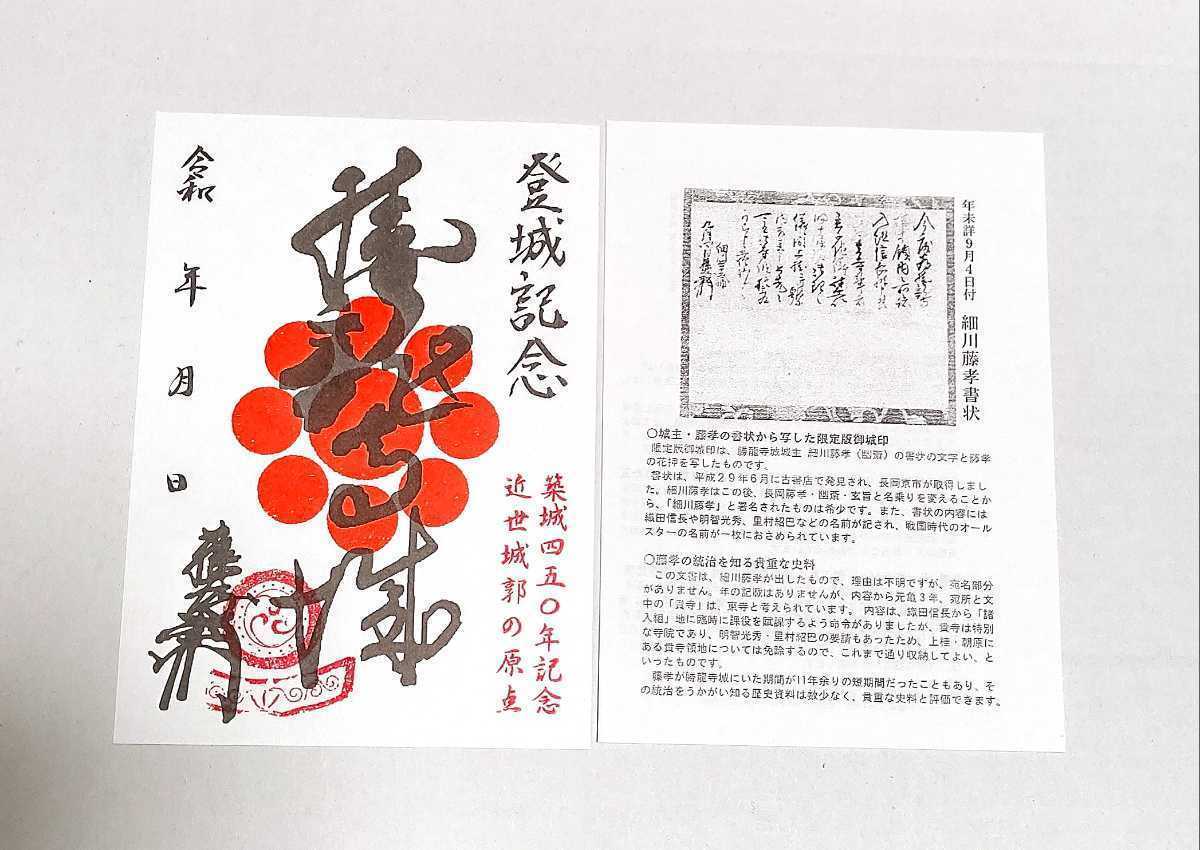 登城記念
勝龍寺城
築城四五〇年記念
近世城郭の原点
令和 年 月 日
藤孝
年未詳9月4日付 細川藤孝書状
〇城主・藤孝の書状から写した限定版御城印
限定版御城印は、勝龍寺城城主 細川藤孝(幽斎)の書状の文字と藤孝
の花押を写したものです。
書状は、平成29年6月に古書店で発見され、長岡京市が取得しまし
た。細川藤孝はこの後、長岡藤孝・幽斎・玄旨と名乗りを変えることか
ら、「細川藤孝」と署名されたものは希少です。また、書状の内容には
織田信長や明智光秀、里村紹巴などの名前が記され、戦国時代のオール
スターの名前が一枚におさめられています。
〇藤孝の統治を知る貴重な史料
この文書は、細川藤孝が出したもので、理由は不明ですが、宛名部分
がありません。年の記載はありませんが、内容から元亀3年、宛所と文
中の「貴寺」は、東寺と考えられています。 内容は、織田信長から「諸
入組」地に臨時に課役を賦課するよう命令がありましたが、貴寺は特別
な寺院であり、明智光秀・里村紹巴の要請もあったため、上桂・朝原に
ある貴寺領地については免除するので、これまで通り収納してよい、と
いったものです。
藤孝が勝龍寺城にいた期間が11年余りの短期間だったこともあり、そ
の統治をうかがい知る歴史資料は数少なく、貴重な史料と評価できます。